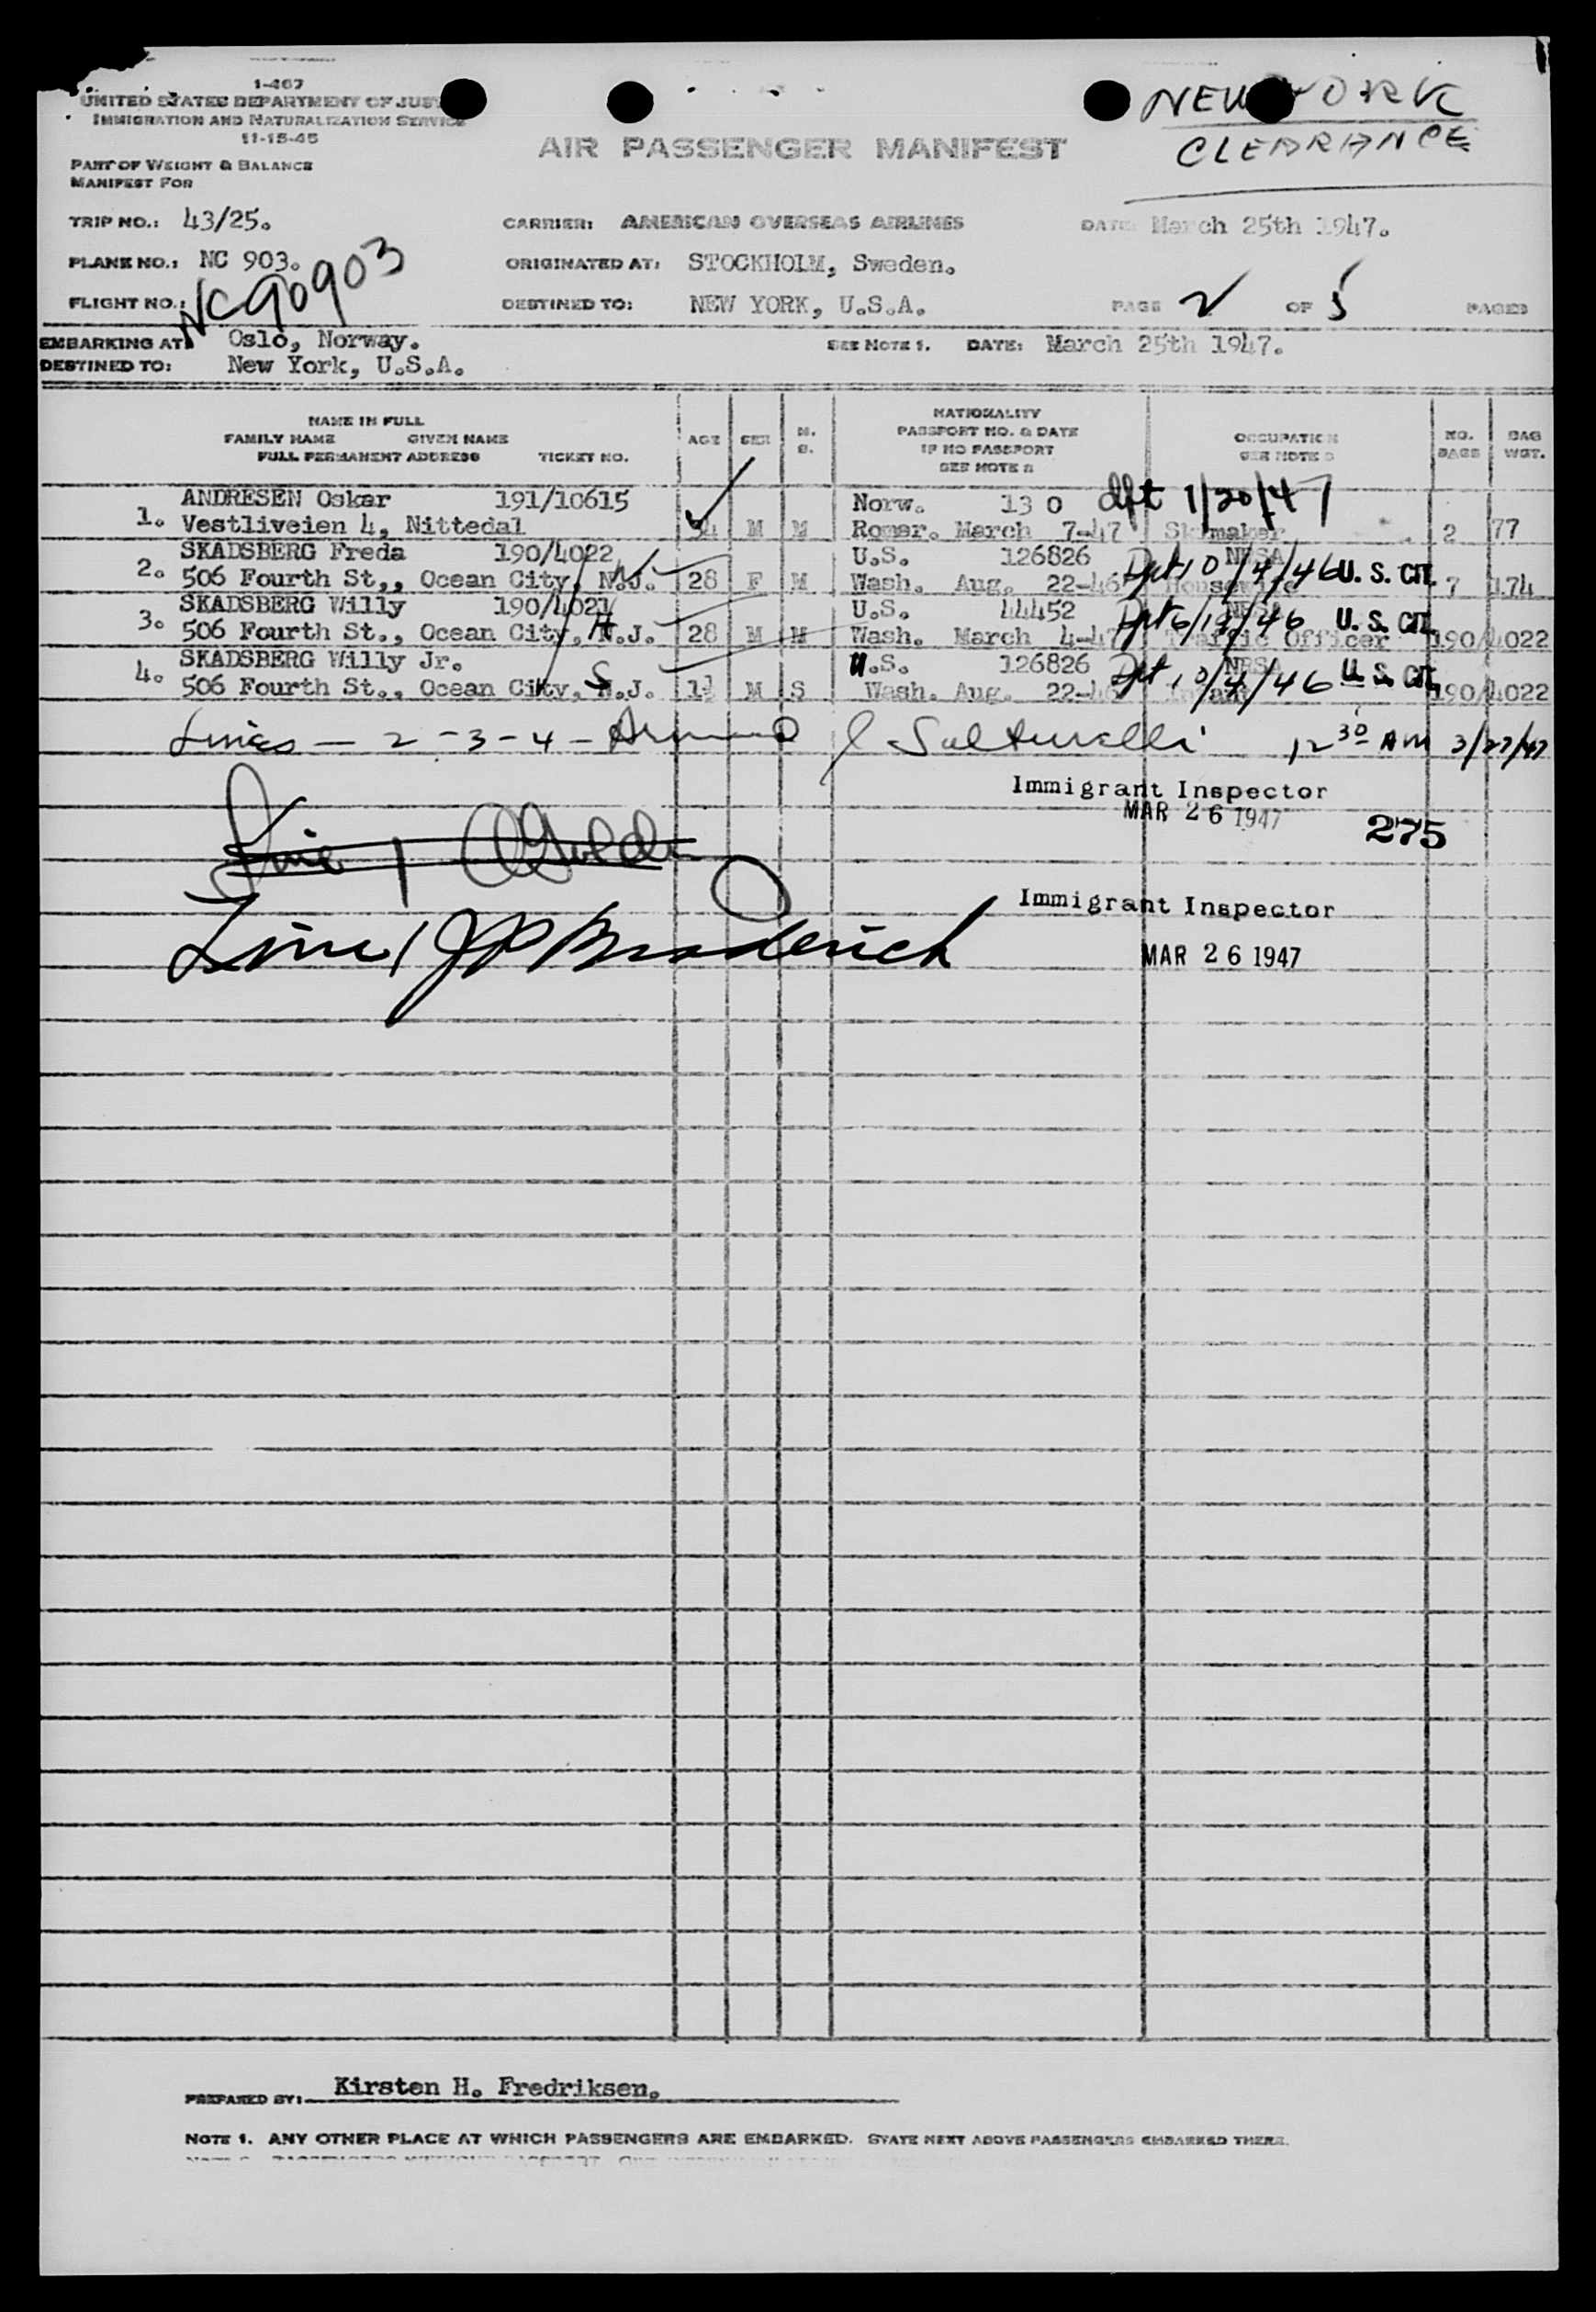 1-467
UNITED STATES DEPARTMENT OF JUS
IMMIGRATION AND NATURALIZATION SERVICE
11-15-45
PART OF WEIGHT & BALANCE
MANIFEST FOR
AIR PASSENGER MANIFEST
NEW YORK
CLEARANCE
TRIP NO.: 43/25.
CARRIER: AMERICAN OVERSEAS AIRLINES
DATE: March 25th 1947.
PLANE NO.: NC 903.
ORIGINATED AT: STOCKHOLM, Sweden.
FLIGHT NO.: NC90903
DESTINED TO: NEW YORK, U.S.A.
PAGE 2 OF 5 PAGES
EMBARKING AT: Oslo, Norway.
SEE NOTE 1. DATE: March 25th 1947.
DESTINED TO: New York, U.S.A.
NAME IN FULL
FAMILY NAME GIVEN NAME
FULL PERMANENT ADDRESS TICKET NO.
AGE
SEX
M.
S.
NATIONALITY
PASSPORT NO. & DATE
IF NO PASSPORT
SEE NOTE 2
OCCUPATION
SEE NOTE 3
NO.
BAGS
BAG
WGT.
ANDRESEN Oskar 191/10615 Norw. 13 0 dpt 1/20/47
1. Vestliveien 4, Nittedal 34 M M Romer. March 7-47 Skimaker 2 77
SKADSBERG Freda 190/4022 U.S. 126826 NRSA
2. 506 Fourth St,, Ocean City, N.J. 28 F M Wash. Aug. 22-46 Dpt 10/4/46 Housewife U. S. CIT. 7 174
SKADSBERG Willy 190/4021 U.S. 44452 NRSA
3. 506 Fourth St., Ocean City, N.J. 28 M M Wash. March 4-47 Traffic Officer U. S. CIT. 190/4022
SKADSBERG Willy Jr. U.S. 126826 NRSA
4. 506 Fourth St., Ocean City, N.J. 1½ M S Wash. Aug. 22-46 Dpt 10/4/46 Infant U. S. CIT. 190/4022
Lines - 2 - 3 - 4 - 12 30 AM 3/27/47
Immigrant Inspector
MAR 26 1947
275
Line 1
Immigrant Inspector
Line 1 JP Broderick
MAR 26 1947
PREPARED BY: Kirsten H. Fredriksen.
NOTE 1. ANY OTHER PLACE AT WHICH PASSENGERS ARE EMBARKED. STATE NEXT ABOVE PASSENGERS EMBARKED THERE.